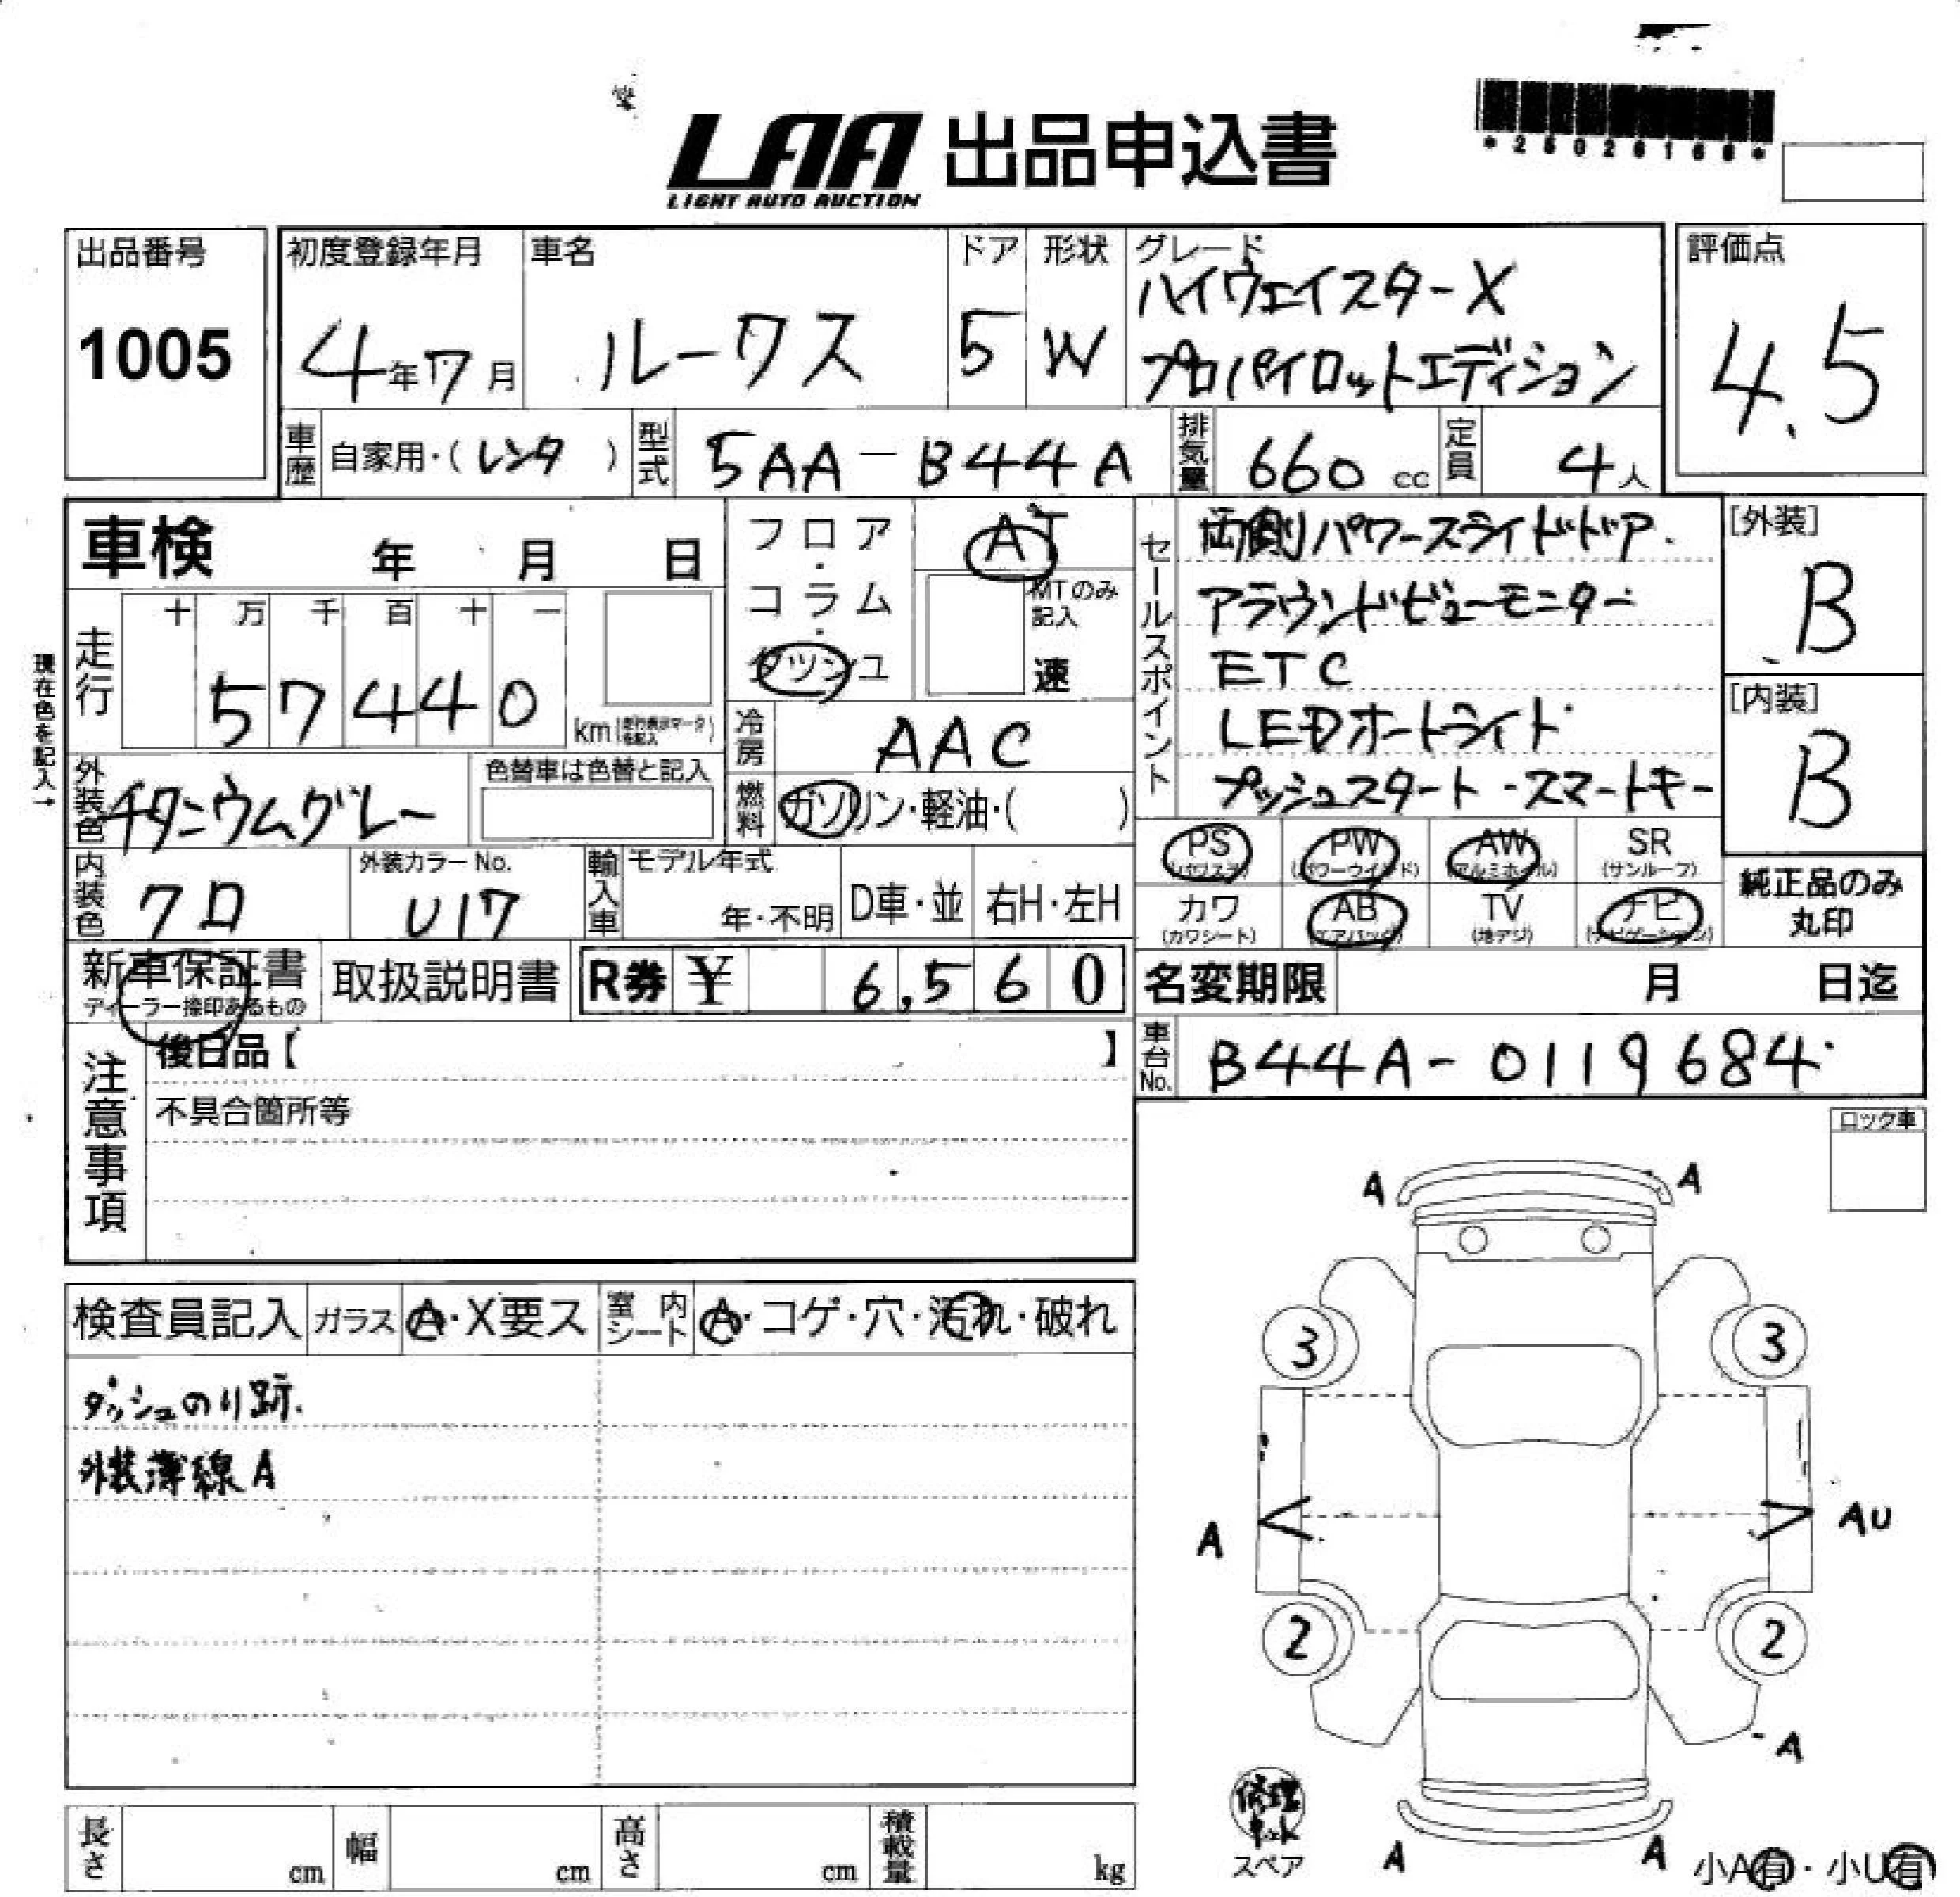 LAA 出品申込書
LIGHT AUTO AUCTION
*25026166*
出品番号
1005
初度登録年月
4年7月
車名
ルークス
ドア
5
形状
W
グレード
ハイウェイスターX
プロパイロットエディション
評価点
4.5
車歴 自家用・(レンタ)
型式 5AA-B44A
排気量 660cc
定員 4人
車検 年 月 日
走行 十 万 千 百 十 一
57440 km
現在色を記入→
フロア・コラム・ダッシュ
AT
MTのみ記入
速
冷房 AAC
燃料 ガソリン・軽油・( )
外装色 チタニウムグレー
色替車は色替と記入
内装色 クロ
外装カラーNo.
U17
輸入車 モデル年式
年・不明
D車・並
右H・左H
セールスポイント
両側パワースライドドア.
アラウンドビューモニター
ETC
LEDオートライト
プッシュスタート・スマートキー
[外装]
B
[内装]
B
PS (パワステ)
PW (パワーウインド)
AW (アルミホイル)
SR (サンルーフ)
カワ (カワシート)
AB (エアバック)
TV (地デジ)
ナビ (ナビゲーション)
純正品のみ
丸印
新車保証書
ディーラー捺印あるもの
取扱説明書
R券 ¥ 6,560
名変期限 月 日迄
車台No. B44A-0119684
注意事項
後日品【 】
不具合箇所等
ロック車
検査員記入
ガラス A・X要ス
室内シート A・コゲ・穴・汚れ・破れ
ダッシュのり跡.
外装薄線A
A A
3 3
A AU
2 2
A
A A
修理キット
スペア
小A有・小U有
長さ cm
幅 cm
高さ cm
積載量 kg